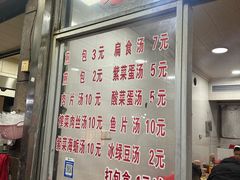 包 3元 扁食汤 7元
包 2元 紫菜蛋汤 5元
肉片汤 10元 酸菜蛋汤 5元
榨菜肉丝汤 10元 鱼片汤 10元
紫菜海蛎汤 10元 冰绿豆汤 2元
打包盒